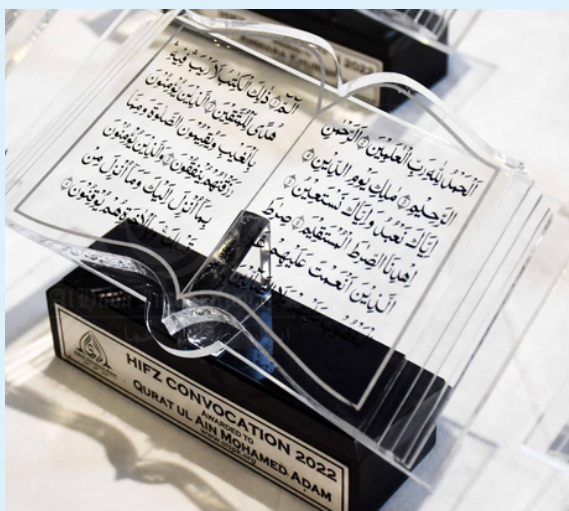 اَلْحَمْدُ لِلّٰهِ رَبِّ الْعٰلَمِيْنَ ۙ الرَّحْمٰنِ
الرَّحِيْمِ ۙ مٰلِكِ يَوْمِ الدِّيْنِ ۙ
اِيَّاكَ نَعْبُدُ وَاِيَّاكَ نَسْتَعِيْنُ ۙ
اِهْدِنَا الصِّرَاطَ الْمُسْتَقِيْمَ ۙ صِرَاطَ
الَّذِيْنَ اَنْعَمْتَ عَلَيْهِمْ
الٓمّٓ ۚ ذٰلِكَ الْكِتٰبُ لَا رَيْبَ فِيْهِ
هُدًى لِّلْمُتَّقِيْنَ ۙ الَّذِيْنَ يُؤْمِنُوْنَ
بِالْغَيْبِ وَيُقِيْمُوْنَ الصَّلٰوةَ وَمِمَّا
رَزَقْنٰهُمْ يُنْفِقُوْنَ ۙ وَالَّذِيْنَ يُؤْمِنُوْنَ
بِمَا اُنْزِلَ اِلَيْكَ وَمَا اُنْزِلَ مِنْ
قَبْلِكَ وَبِالْاٰخِرَةِ هُمْ يُوْقِنُوْنَ
HIFZ CONVOCATION 2022
AWARDED TO
QURAT UL AIN MOHAMED ADAM